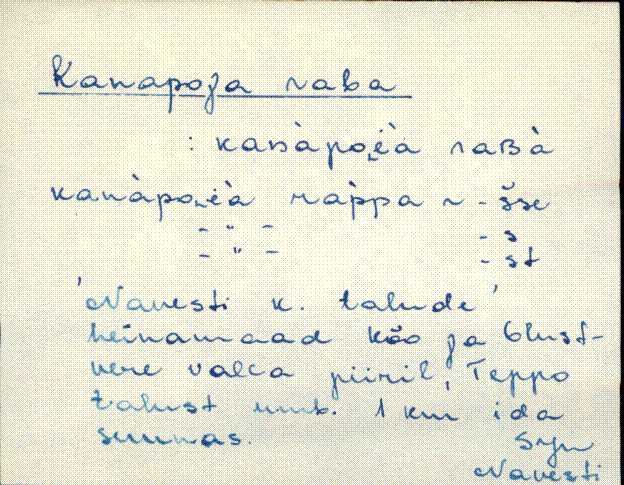 Kanapoja raba
: kanàpoi̯à raʙà
kanàpoi̯à ràppa ~ -šse
- " - - s
- " - - st
'Navesti k. talude'
heinamaad Kõo ja Olust-
vere valla piiril, Teppo
talust umb. 1 km ida
suunas.
SJn
Navesti